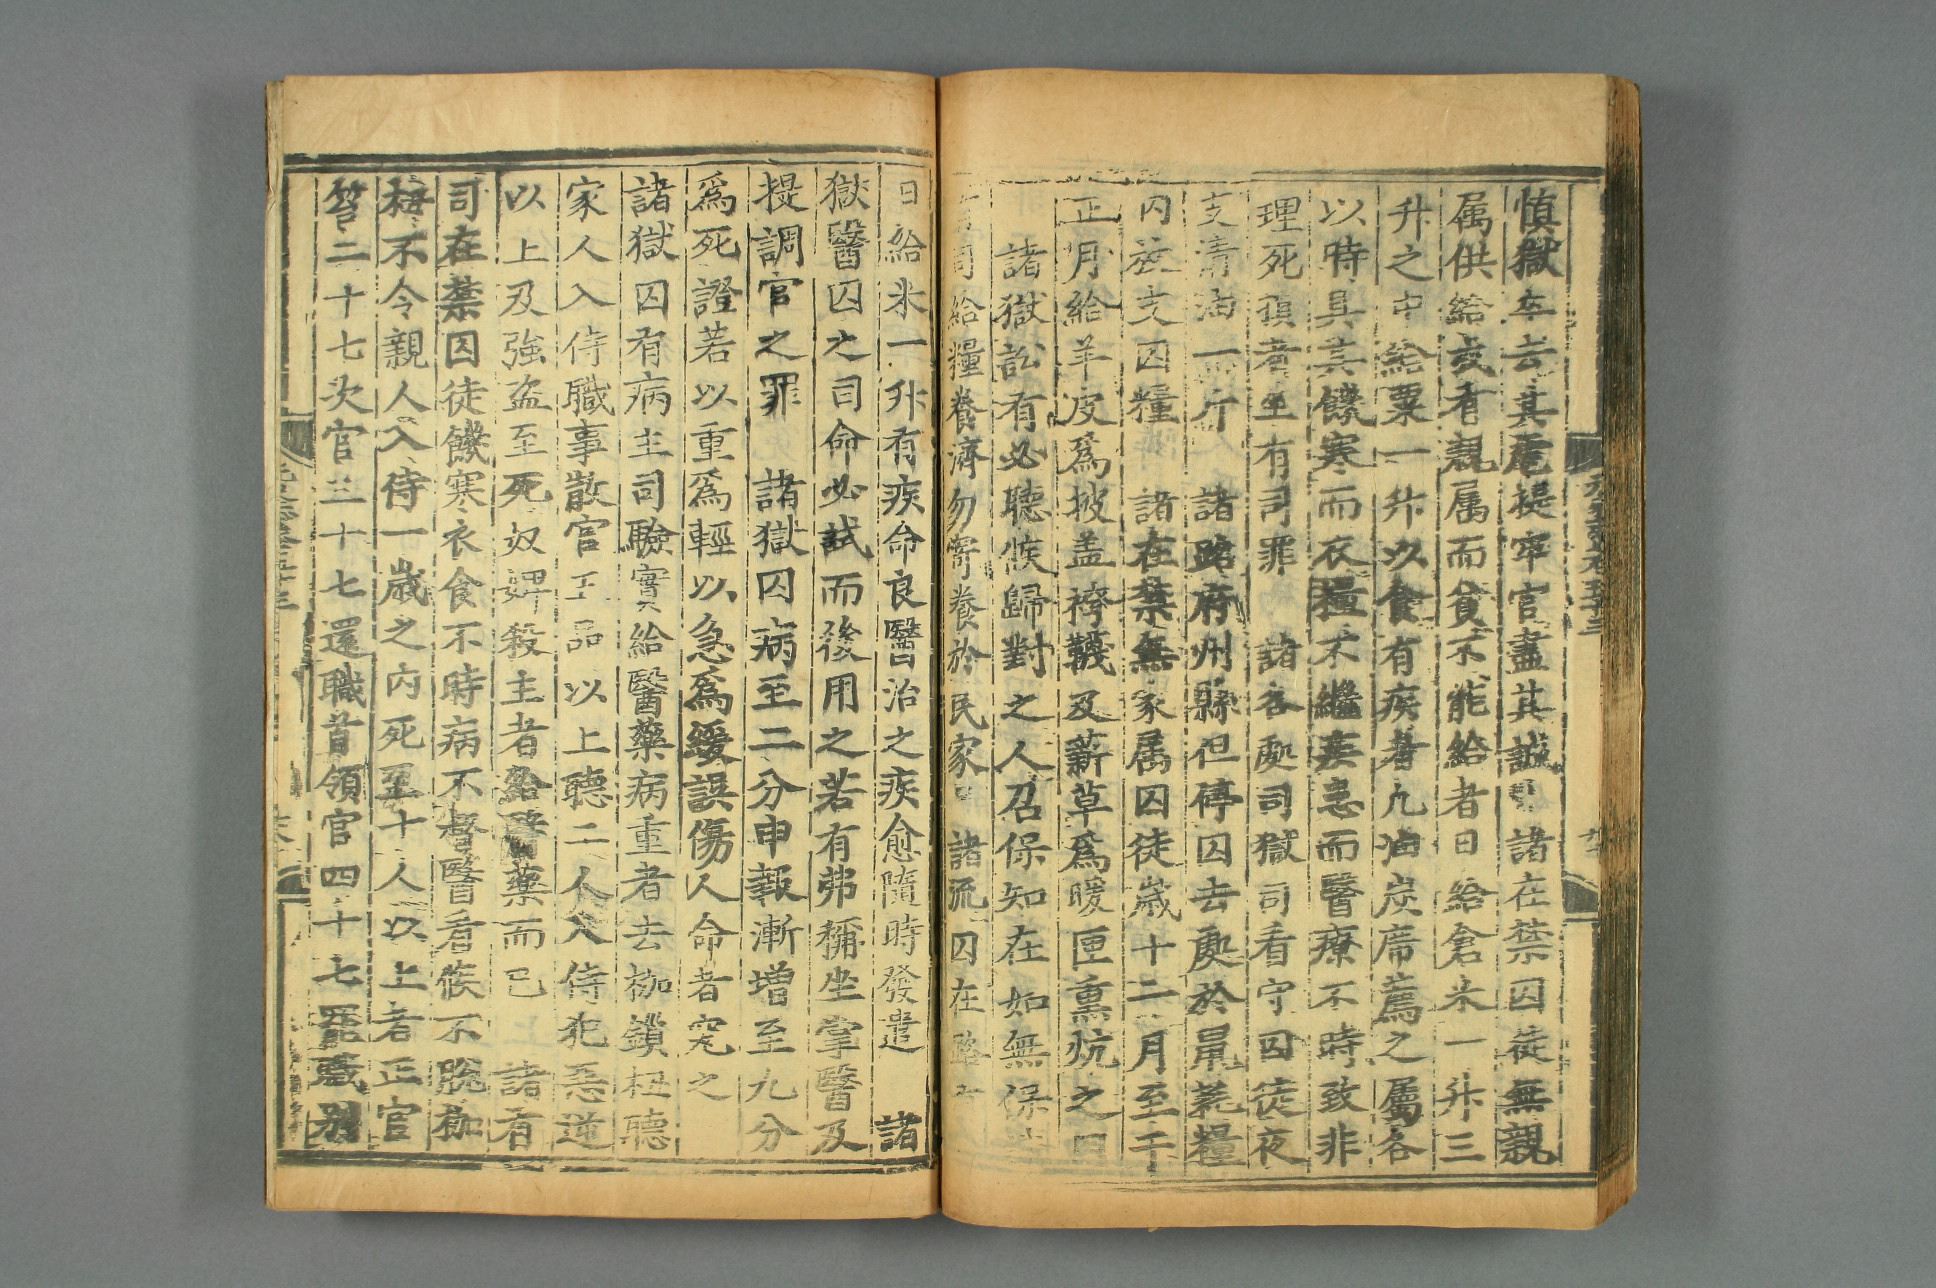 慎獄卒去其虐提牢官盡其誠 諸在禁囚徒無親
属供給或有親属而貧不能給者日給倉米一升三
升之中給粟一升以食有疾者凡油炭席薦之屬各
以時具其饑寒而衣糧不繼疾患而醫療不時致非
理死損者坐有司罪 諸各處司獄司看守囚徒夜
支清油一斤 諸路府州縣但停囚去處於鼠耗糧
内放支囚糧 諸在禁無家属囚徒歲十二月至于
正月給羊皮爲披盖袴韈及薪草爲暖匣熏炕之
諸獄訟有必聽候歸對之人召保知在如無保
司給糧養濟勿寄養於民家 諸流囚在路
日給米一升有疾命良醫治之疾愈隨時發遣 諸
獄醫囚之司命必試而後用之若有弗稱坐掌醫及
提調官之罪 諸獄囚病至二分申報漸增至九分
爲死證若以重爲輕以急爲緩誤傷人命者究之
諸獄囚有病主司驗實給醫藥病重者去枷鎖杻聽
家人入侍職事散官五品以上聽二人入侍犯惡逆
以上及強盗至死奴婢殺主者給醫藥而已 諸有
司在禁囚徒饑寒衣食不時病不督醫看候不脫枷
杻不令親人入侍一歲之内死至十人以上者正官
笞二十七次官三十七還職首領官四十七罷職别